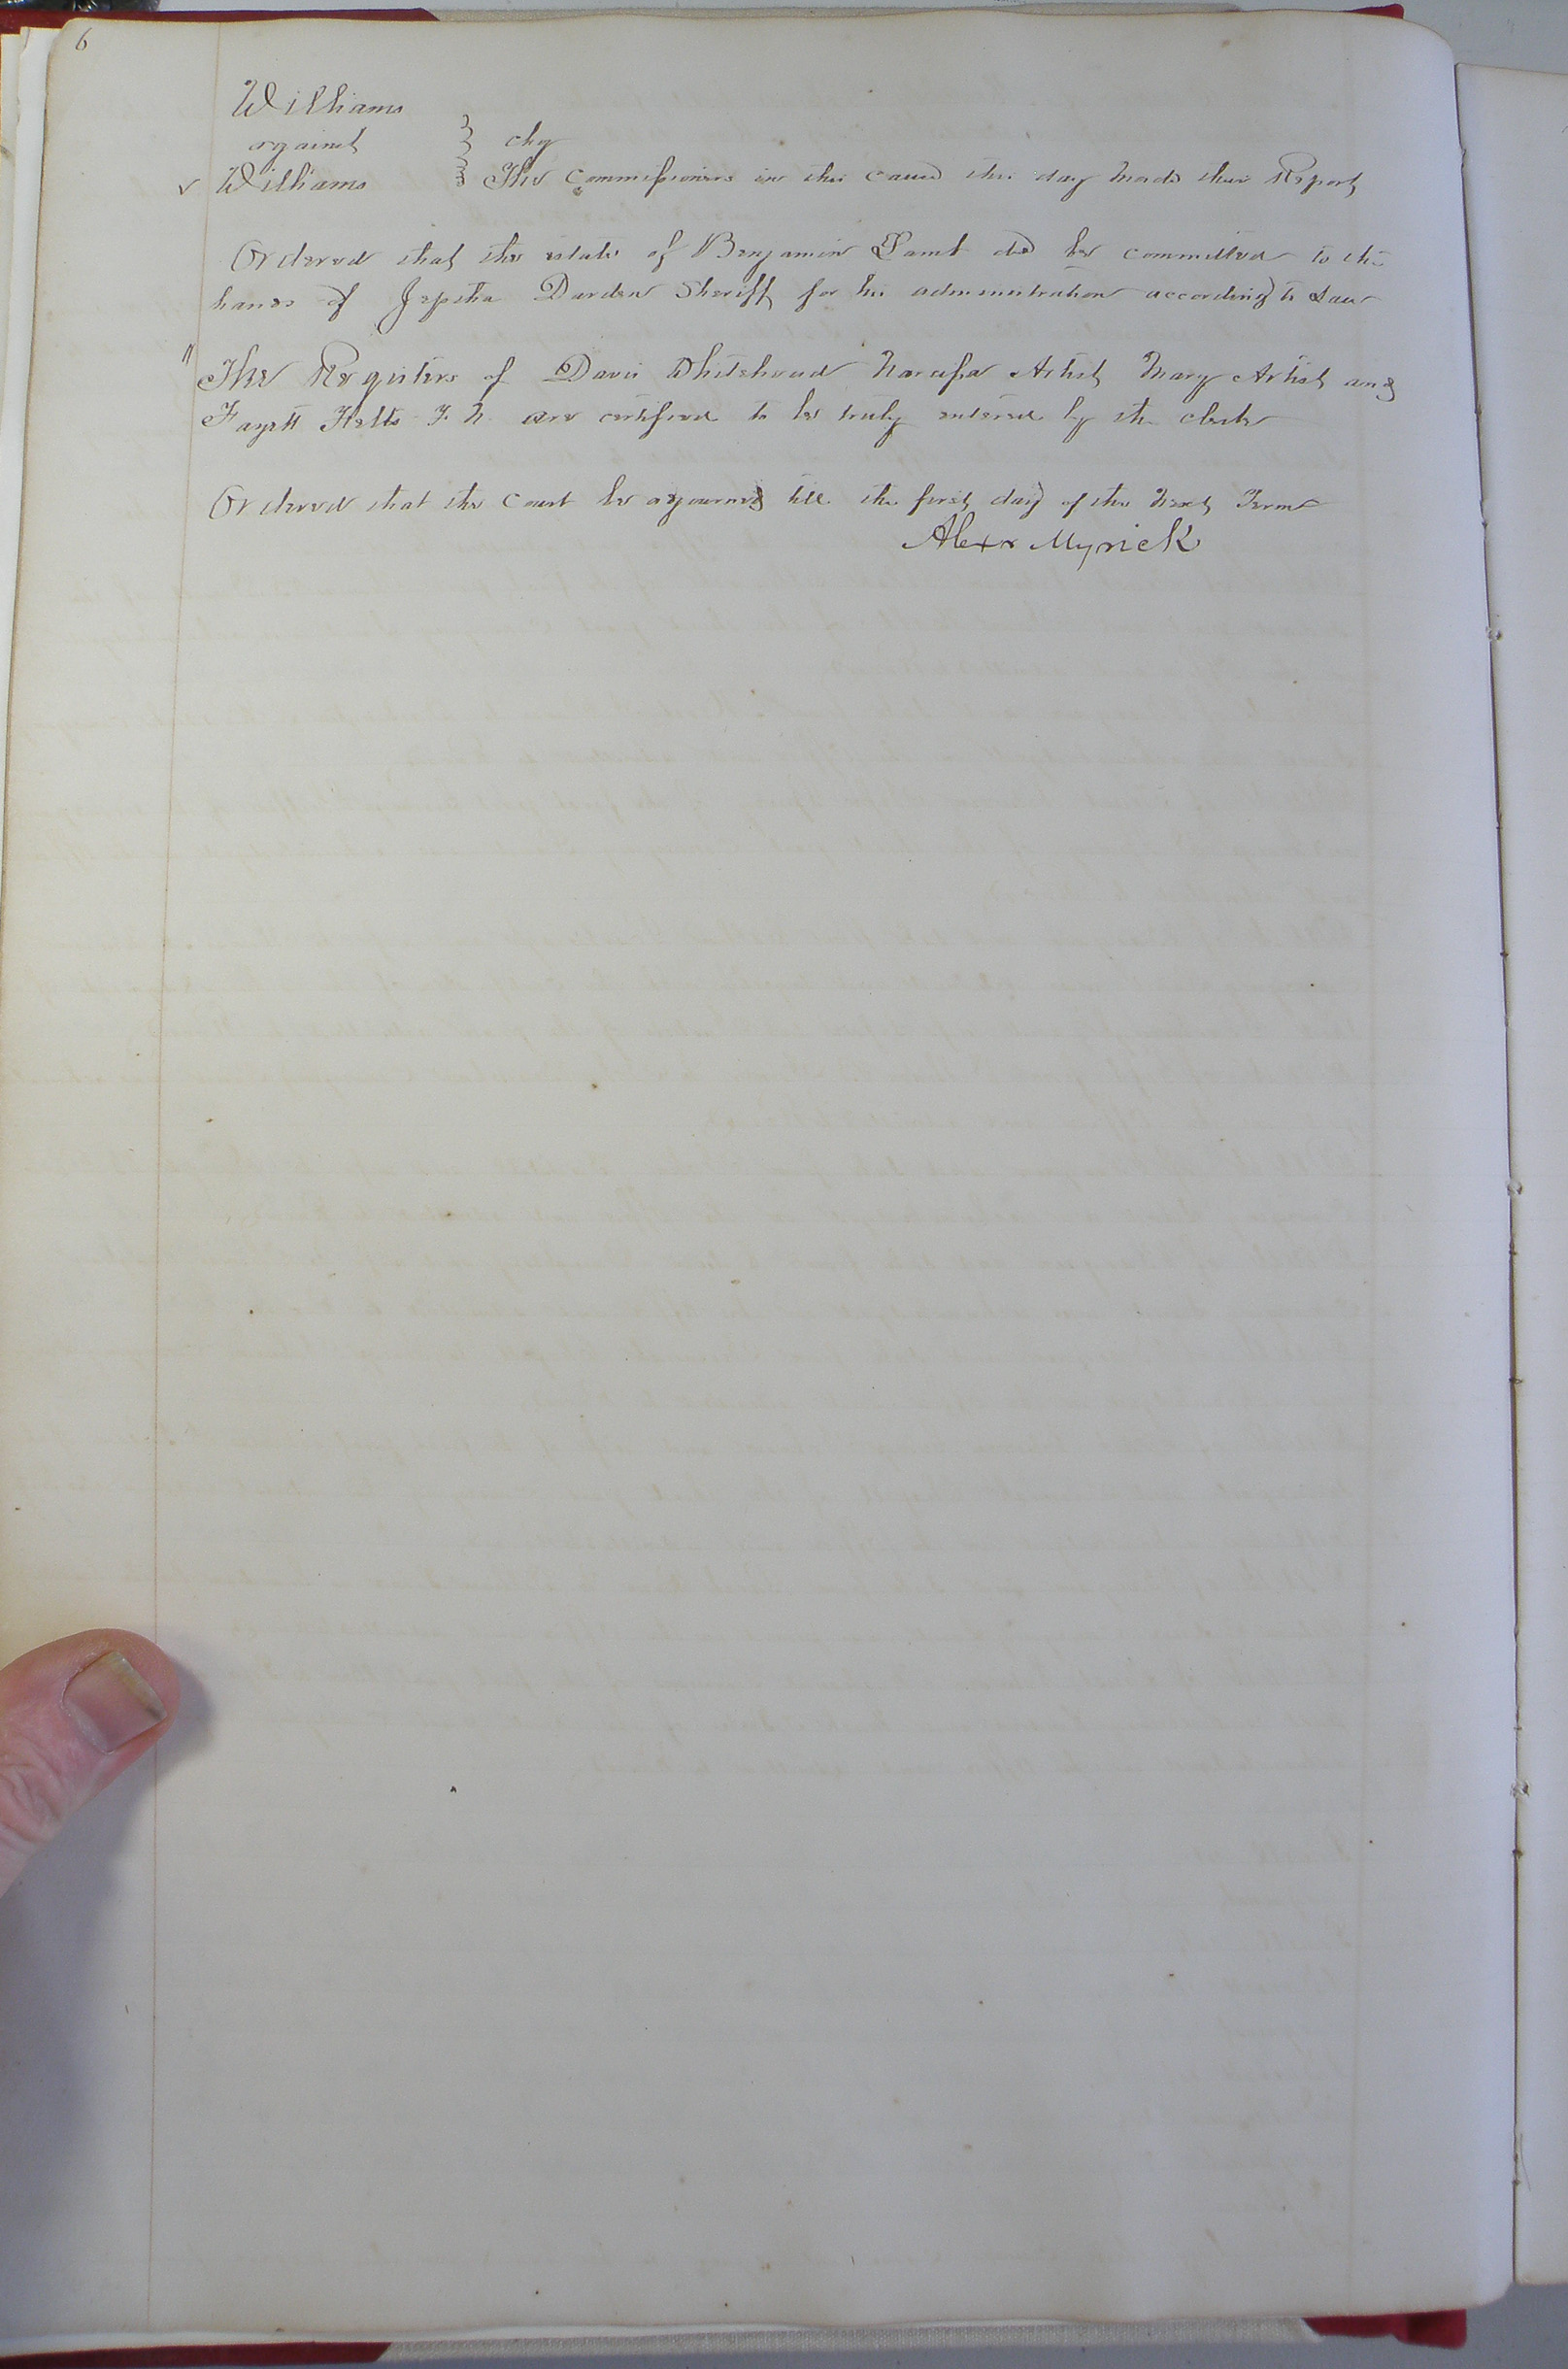 6
Williams
against } chy
v Williams } The Commissioners in this cause this day made their Report
Ordered that the estate of Benjamin Lamb decd be committed to the
hands of Jeptha Darden Sheriff for his administration according to Law
" The Registers of Davis Whitehead Narcissa Artist Mary Artist and
Fayett Felts F. N. are certified to be truly entered by the clerk
Ordered that the Court be adjourned till the first day of the next Term
Alexr Myrick